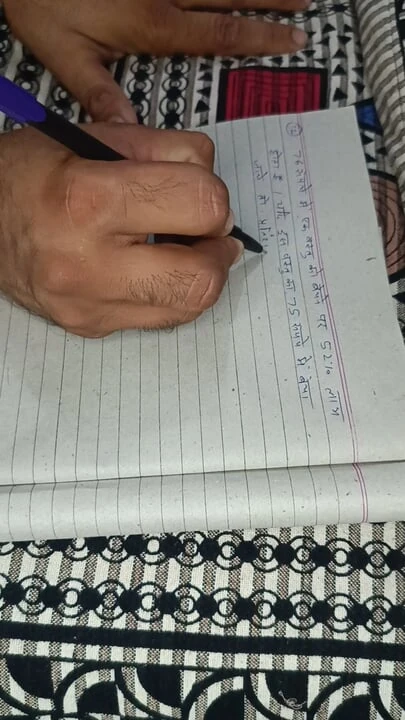 76 रुपये में एक वस्तु को बेचने पर 52% लाभ
होता है। यदि इस वस्तु को 75 रुपये में बेचा
जाये तो